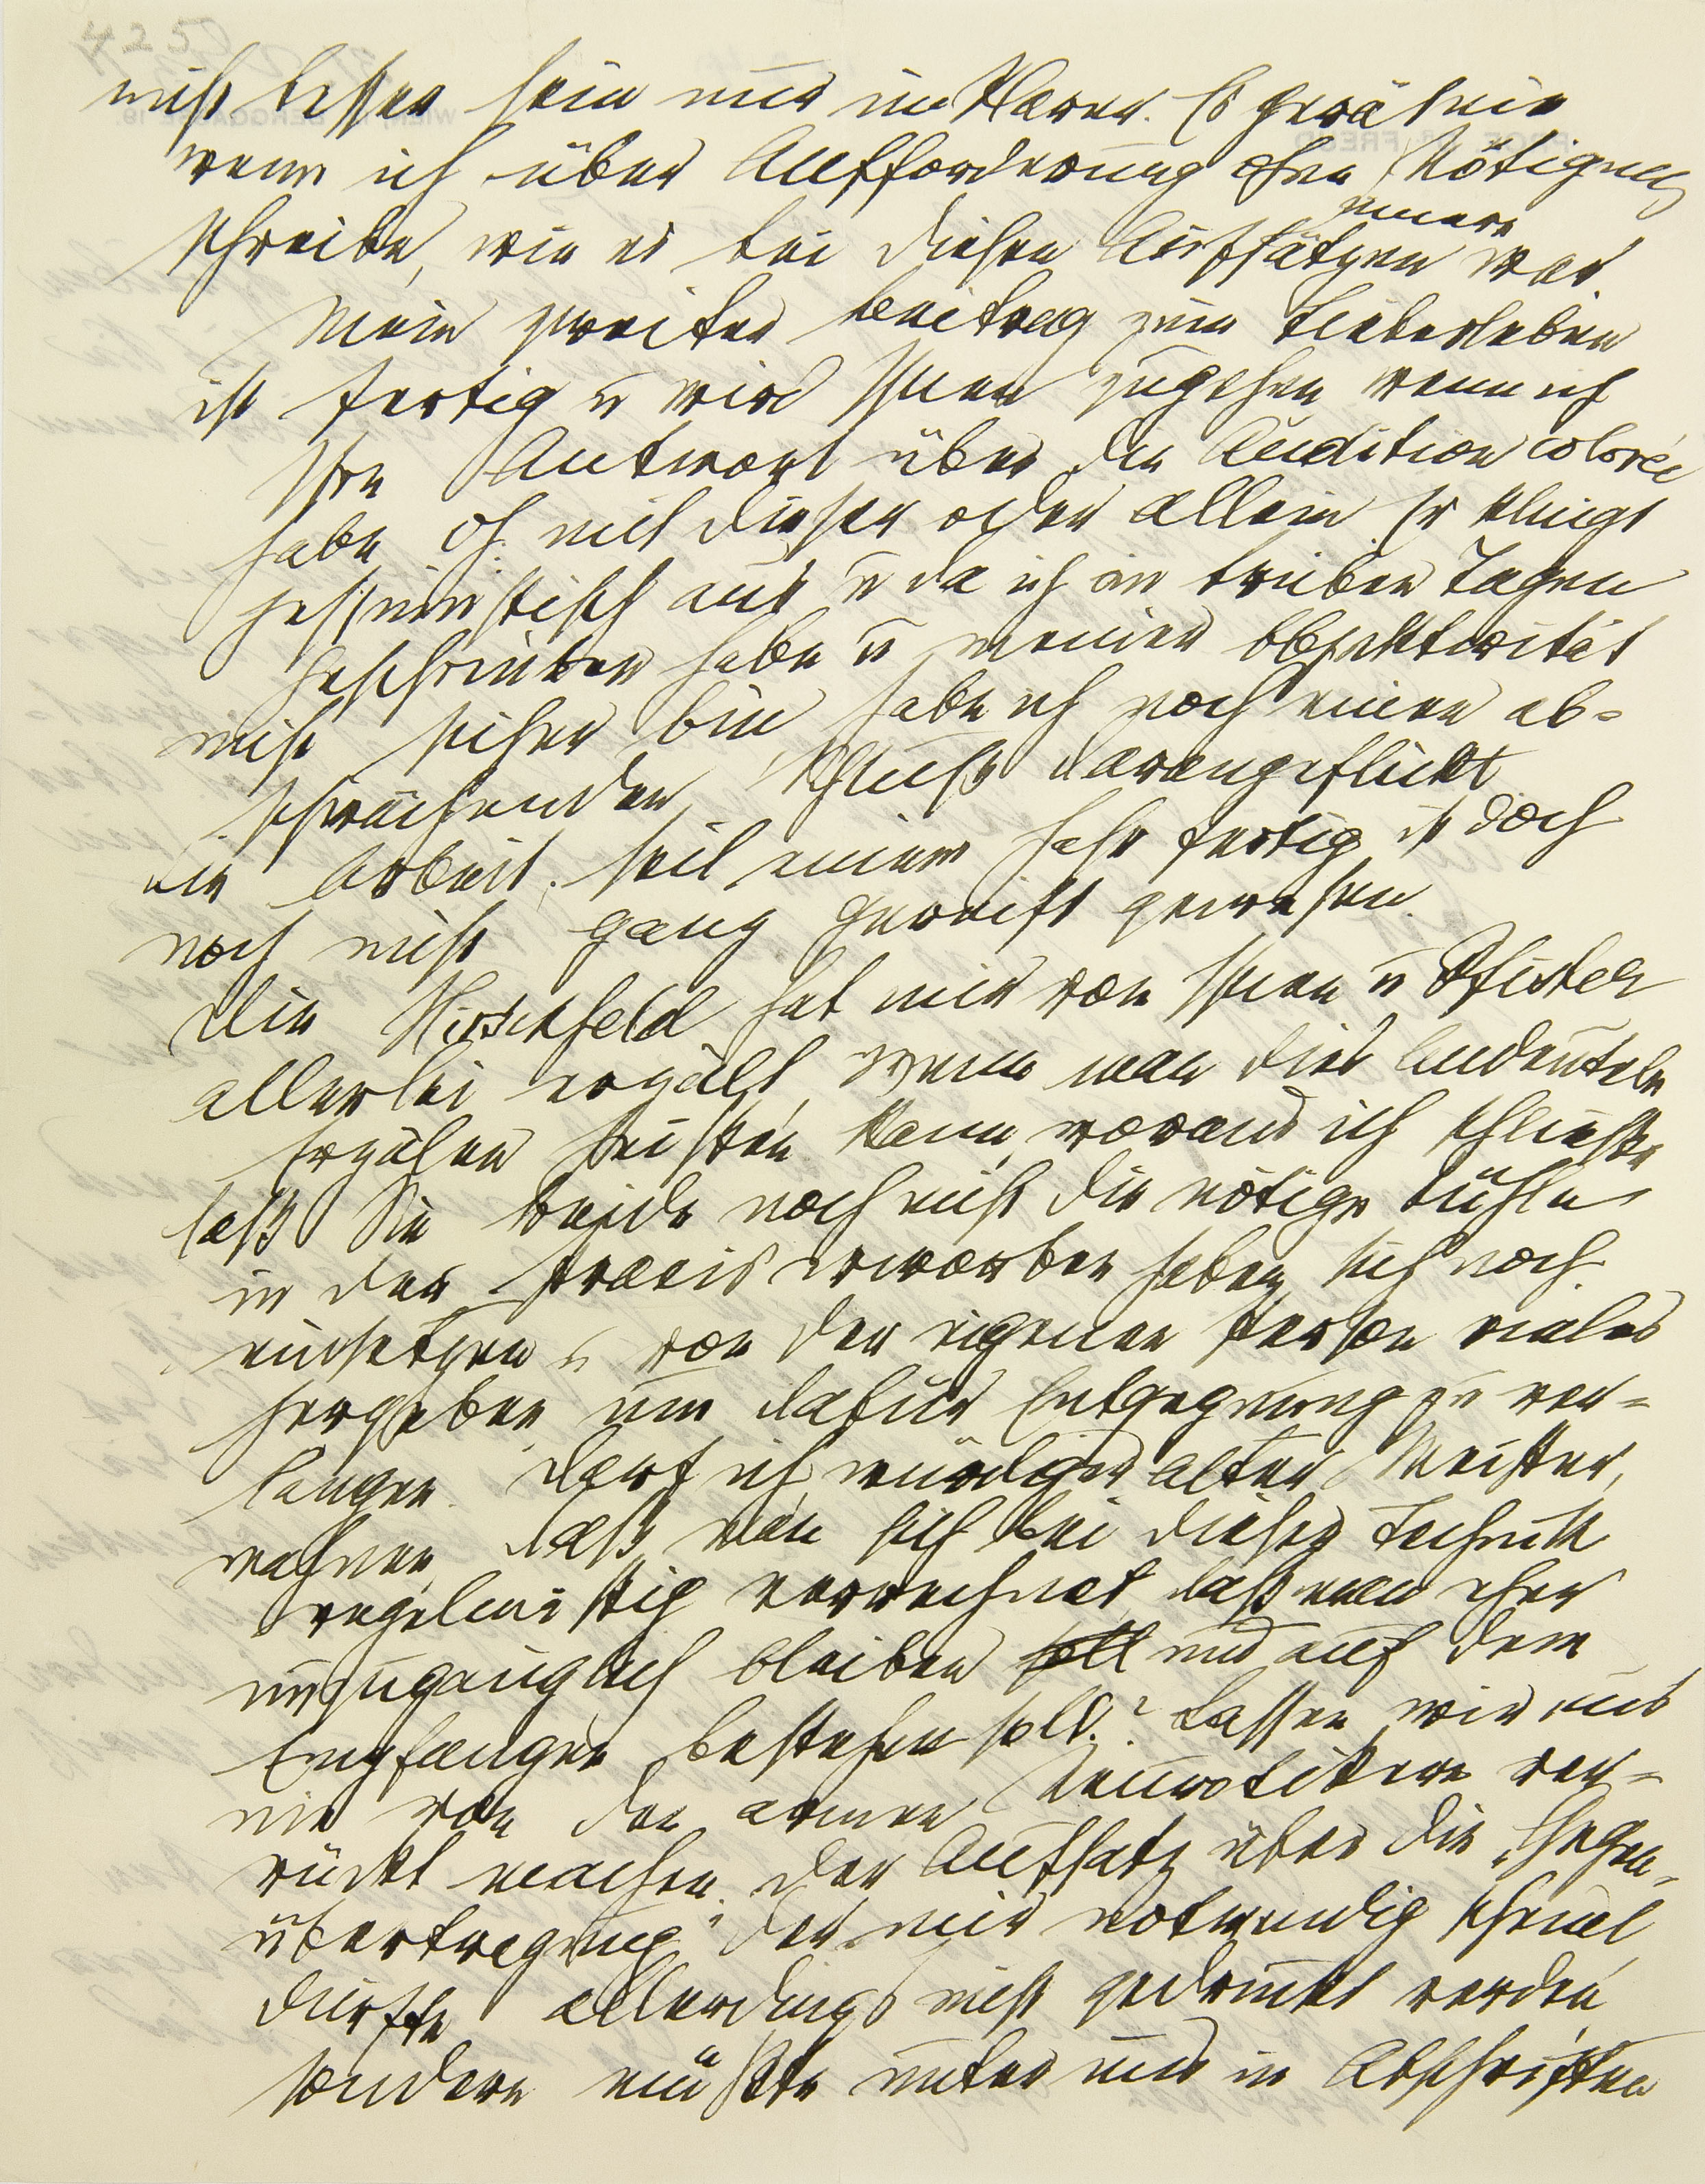 4250
nicht besser sein und im Klaren. Es gerät nie
wenn ich über Aufforderung ohne Nötigung
innere
schreibe, wie es bei diesen Aufsätzen war.
Mein zweiter Beitrag zum Liebesleben
ist fertig u wird Ihnen zugehen wenn ich
Ihre Antwort über die Audition colorée
habe ob mit dieser oder allein. Er klingt
pessimistisch aus u da ich ihn in trüben Tagen
geschrieben habe u meiner Objektivität
nicht sicher bin habe ich noch einen ab-
schwächenden Schluß darangeflickt
Die Arbeit, seit einem Jahr fertig, ist doch
noch nicht ganz gereift gewesen.
Die Hirschfeld hat mir von Ihnen u Pfister
allerlei erzält, wenn man dies Andeuteln
Erzälen heißen kann, woraus ich schließe,
daß Sie beide noch nicht die nötige Kühle
in der Praxis erworben haben, sich noch
einsetzen u von der eigenen Person vieles
hergeben, um dafür Entgegnung zu ver-
langen. Darf ich, würdiger alter Meister,
mahnen, daß man sich bei dieser Technik
regelmäßig verrechnet, daß man eher
unzugänglich bleiben soll und auf dem
Empfangen bestehen soll? Lassen wir uns
nie von den armen Neurotikern ver-
rückt machen. Der Aufsatz über die „Gegen-
übertragung“, der mir notwendig scheint,
dürfte allerdings nicht gedruckt werden,
sondern müßte unter uns in Abschriften